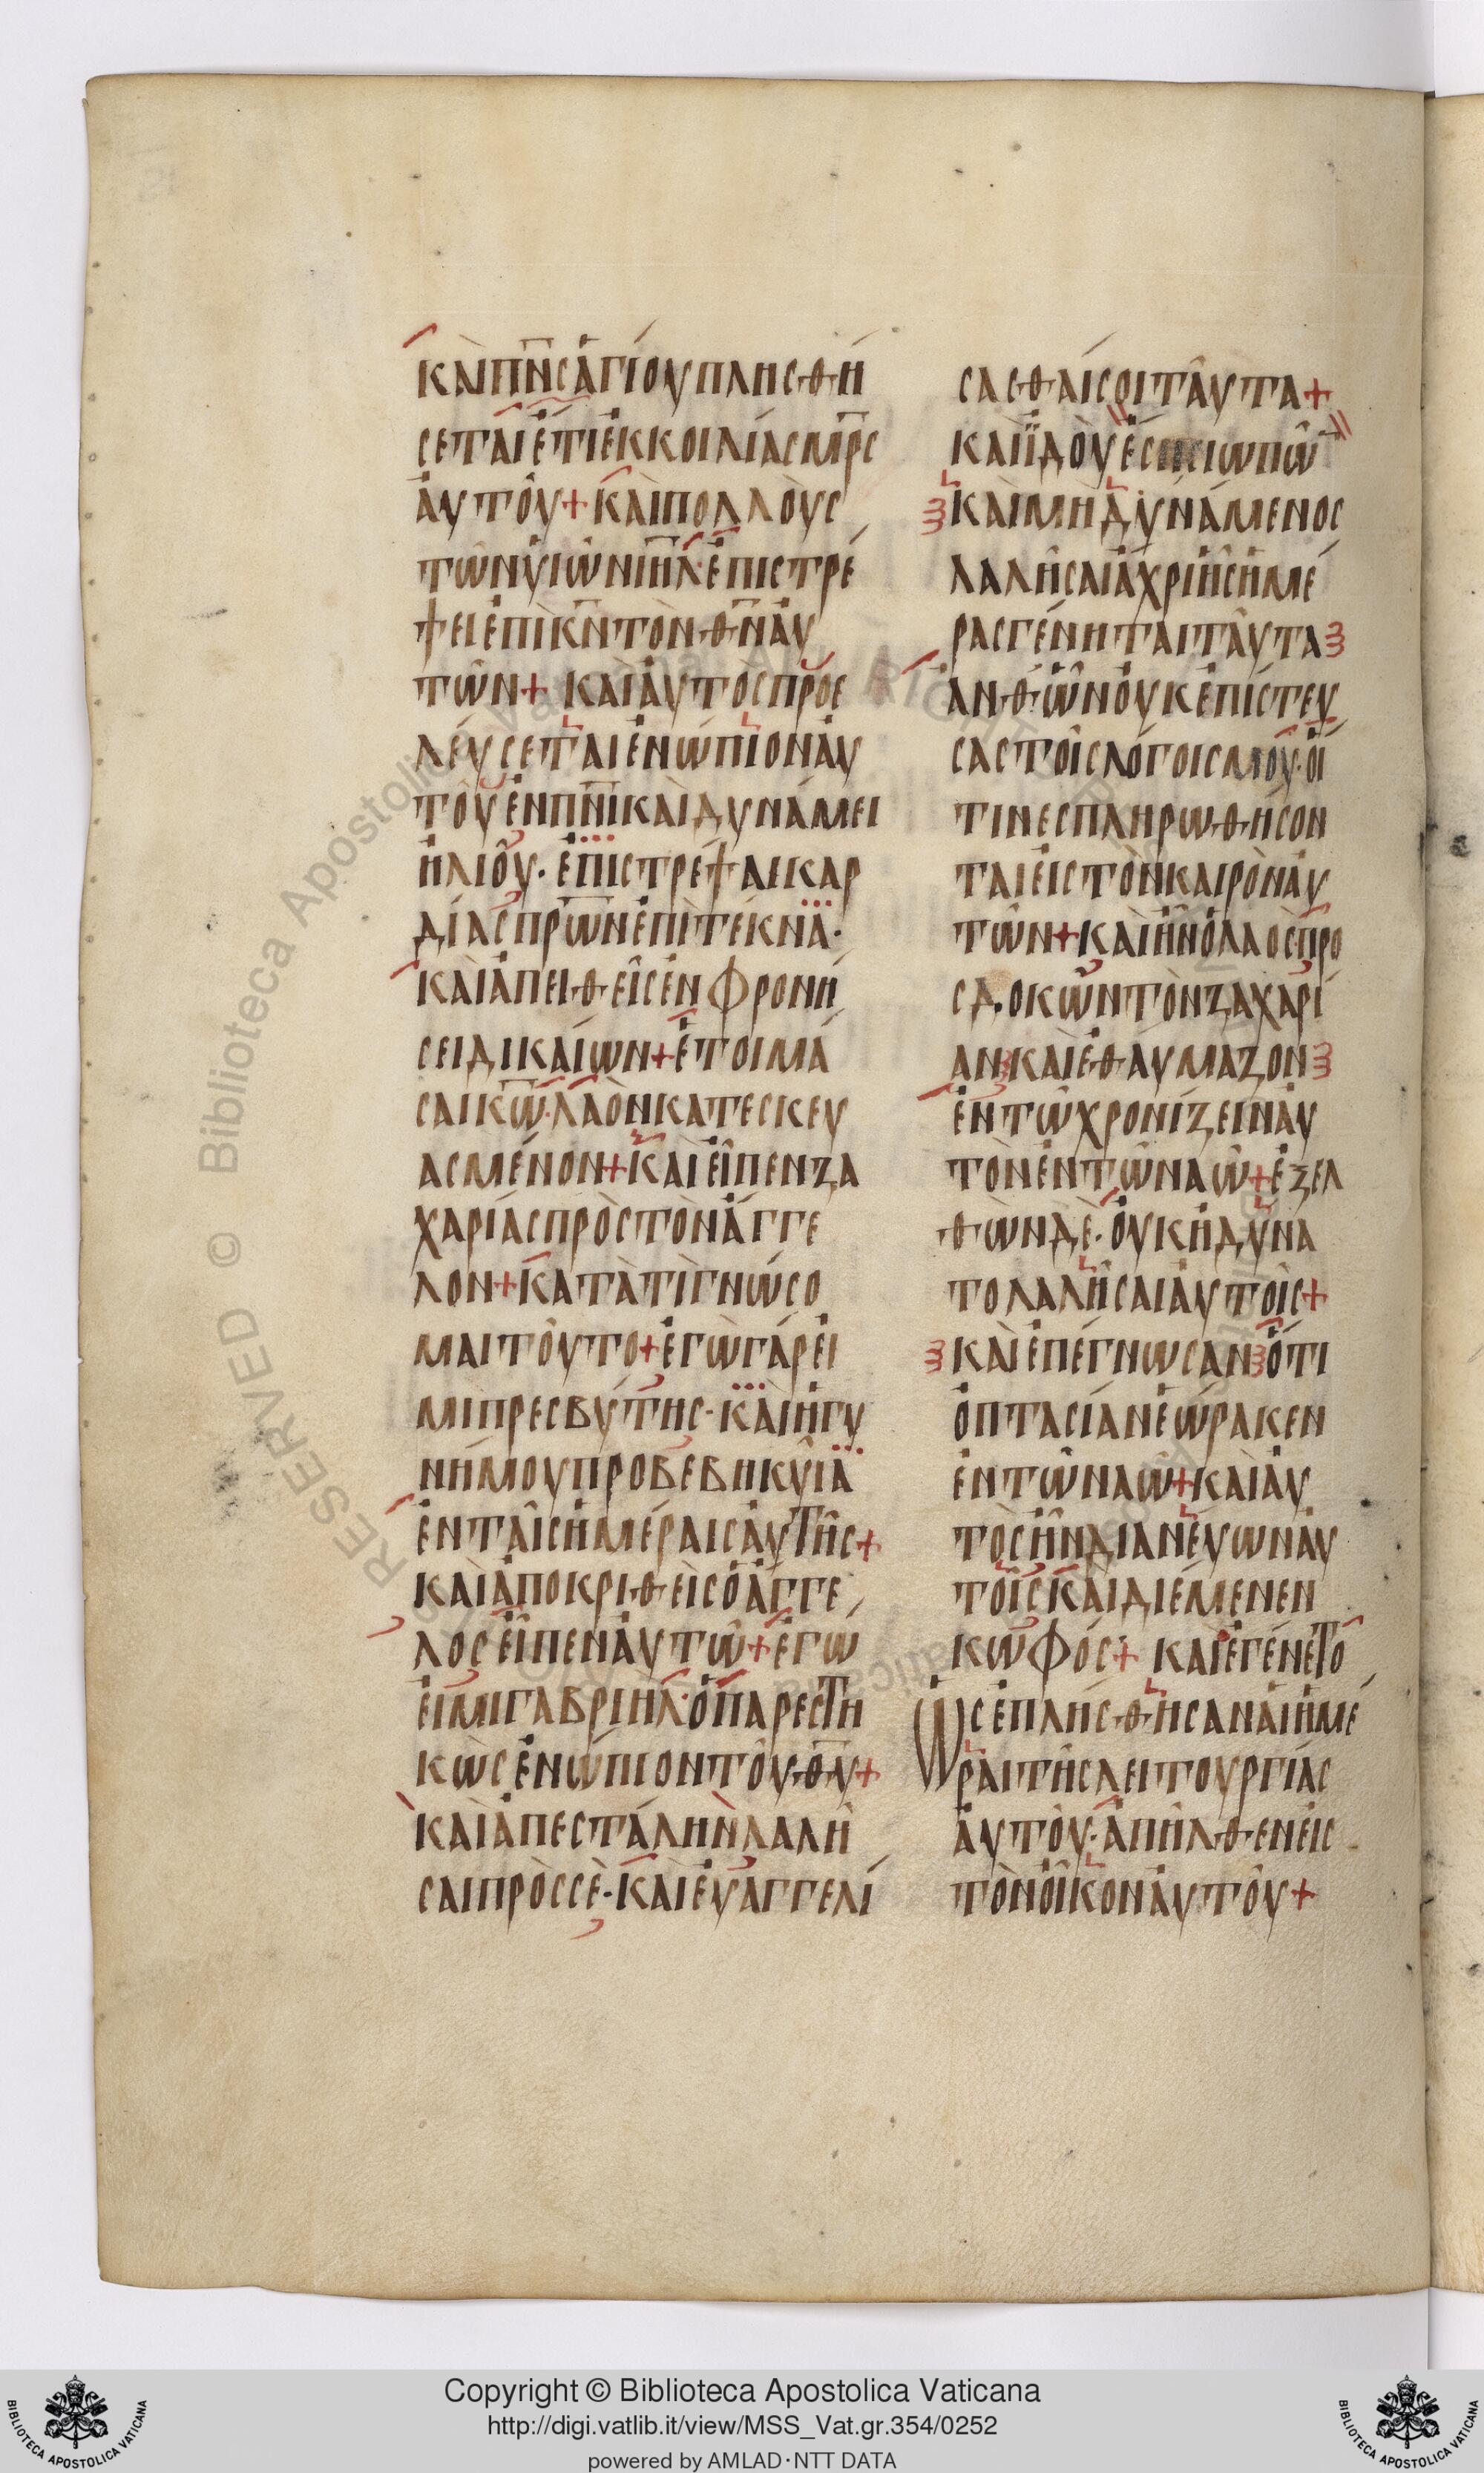 ΚΑΙ ΠΝΣ ΑΓΙΟΥ ΠΛΗΣΘΗ
ΣΕΤΑΙ ΕΤΙ ΕΚ ΚΟΙΛΙΑΣ ΜΡΣ
ΑΥΤΟΥ + ΚΑΙ ΠΟΛΛΟΥΣ
ΤΩΝ ΥΙΩΝ ΙΗΛ· ΕΠΙΣΤΡΕ
ΨΕΙ ΕΠΙ ΚΝ ΤΟΝ ΘΝ ΑΥ
ΤΩΝ + ΚΑΙ ΑΥΤΟΣ ΠΡΟΕ
ΛΕΥΣΕΤΑΙ ΕΝΩΠΙΟΝ ΑΥ
ΤΟΥ ΕΝ ΠΝΙ ΚΑΙ ΔΥΝΑΜΕΙ
ΗΛΙΟΥ· ΕΠΙΣΤΡΕΨΑΙ ΚΑΡ
ΔΙΑΣ ΠΡΩΝ ΕΠΙ ΤΕΚΝΑ·
ΚΑΙ ΑΠΕΙΘΕΙΣ ΕΝ ΦΡΟΝΗ
ΣΕΙ ΔΙΚΑΙΩΝ + ΕΤΟΙΜΑ
ΣΑΙ ΚΩ· ΛΑΟΝ ΚΑΤΕΣΚΕΥ
ΑΣΜΕΝΟΝ + ΚΑΙ ΕΙΠΕΝ ΖΑ
ΧΑΡΙΑΣ ΠΡΟΣ ΤΟΝ ΑΓΓΕ
ΛΟΝ + ΚΑΤΑ ΤΙ ΓΝΩΣΟ
ΜΑΙ ΤΟΥΤΟ + ΕΓΩ ΓΑΡ ΕΙ
ΜΙ ΠΡΕΣΒΥΤΗΣ· ΚΑΙ Η ΓΥ
ΝΗ ΜΟΥ ΠΡΟΒΕΒΗΚΥΙΑ
ΕΝ ΤΑΙΣ ΗΜΕΡΑΙΣ ΑΥΤΗΣ +
ΚΑΙ ΑΠΟΚΡΙΘΕΙΣ Ο ΑΓΓΕ
ΛΟΣ ΕΙΠΕΝ ΑΥΤΩ + ΕΓΩ
ΕΙΜΙ ΓΑΒΡΙΗΛ· Ο ΠΑΡΕΣΤΗ
ΚΩΣ ΕΝΩΠΙΟΝ ΤΟΥ ΘΥ +
ΚΑΙ ΑΠΕΣΤΑΛΗΝ ΛΑΛΗ
ΣΑΙ ΠΡΟΣ ΣΕ· ΚΑΙ ΕΥΑΓΓΕΛΙ
ΣΑΣΘΑΙ ΣΟΙ ΤΑΥΤΑ +
ΚΑΙ ΙΔΟΥ ΕΣΗ ΣΙΩΠΩ
ΚΑΙ ΜΗ ΔΥΝΑΜΕΝΟΣ
ΛΑΛΗΣΑΙ ΑΧΡΙ ΗΣ ΗΜΕ
ΡΑΣ ΓΕΝΗΤΑΙ ΤΑΥΤΑ
ΑΝΘ ΩΝ ΟΥΚ ΕΠΙΣΤΕΥ
ΣΑΣ ΤΟΙΣ ΛΟΓΟΙΣ ΜΟΥ· ΟΙ
ΤΙΝΕΣ ΠΛΗΡΩΘΗΣΟΝ
ΤΑΙ ΕΙΣ ΤΟΝ ΚΑΙΡΟΝ ΑΥ
ΤΩΝ + ΚΑΙ ΗΝ Ο ΛΑΟΣ ΠΡΟ
ΣΔΟΚΩΝ ΤΟΝ ΖΑΧΑΡΙ
ΑΝ ΚΑΙ ΕΘΑΥΜΑΖΟΝ
ΕΝ ΤΩ ΧΡΟΝΙΖΕΙΝ ΑΥ
ΤΟΝ ΕΝ ΤΩ ΝΑΩ + ΕΞΕΛ
ΘΩΝ ΔΕ· ΟΥΚ ΗΔΥΝΑ
ΤΟ ΛΑΛΗΣΑΙ ΑΥΤΟΙΣ +
ΚΑΙ ΕΠΕΓΝΩΣΑΝ ΟΤΙ
ΟΠΤΑΣΙΑΝ ΕΩΡΑΚΕΝ
ΕΝ ΤΩ ΝΑΩ + ΚΑΙ ΑΥ
ΤΟΣ ΗΝ ΔΙΑΝΕΥΩΝ ΑΥ
ΤΟΙΣ ΚΑΙ ΔΙΕΜΕΝΕΝ
ΚΩΦΟΣ + ΚΑΙ ΕΓΕΝΕΤΟ
ΩΣ ΕΠΛΗΣΘΗΣΑΝ ΑΙ ΗΜΕ
ΡΑΙ ΤΗΣ ΛΕΙΤΟΥΡΓΙΑΣ
ΑΥΤΟΥ· ΑΠΗΛΘΕΝ ΕΙΣ
ΤΟΝ ΟΙΚΟΝ ΑΥΤΟΥ +
RESERVED © Biblioteca Apostolica Vaticana
Copyright © Biblioteca Apostolica Vaticana
http://digi.vatlib.it/view/MSS_Vat.gr.354/0252
powered by AMLAD·NTT DATA
BIBLIOTECA APOSTOLICA VATICANA
BIBLIOTECA APOSTOLICA VATICANA